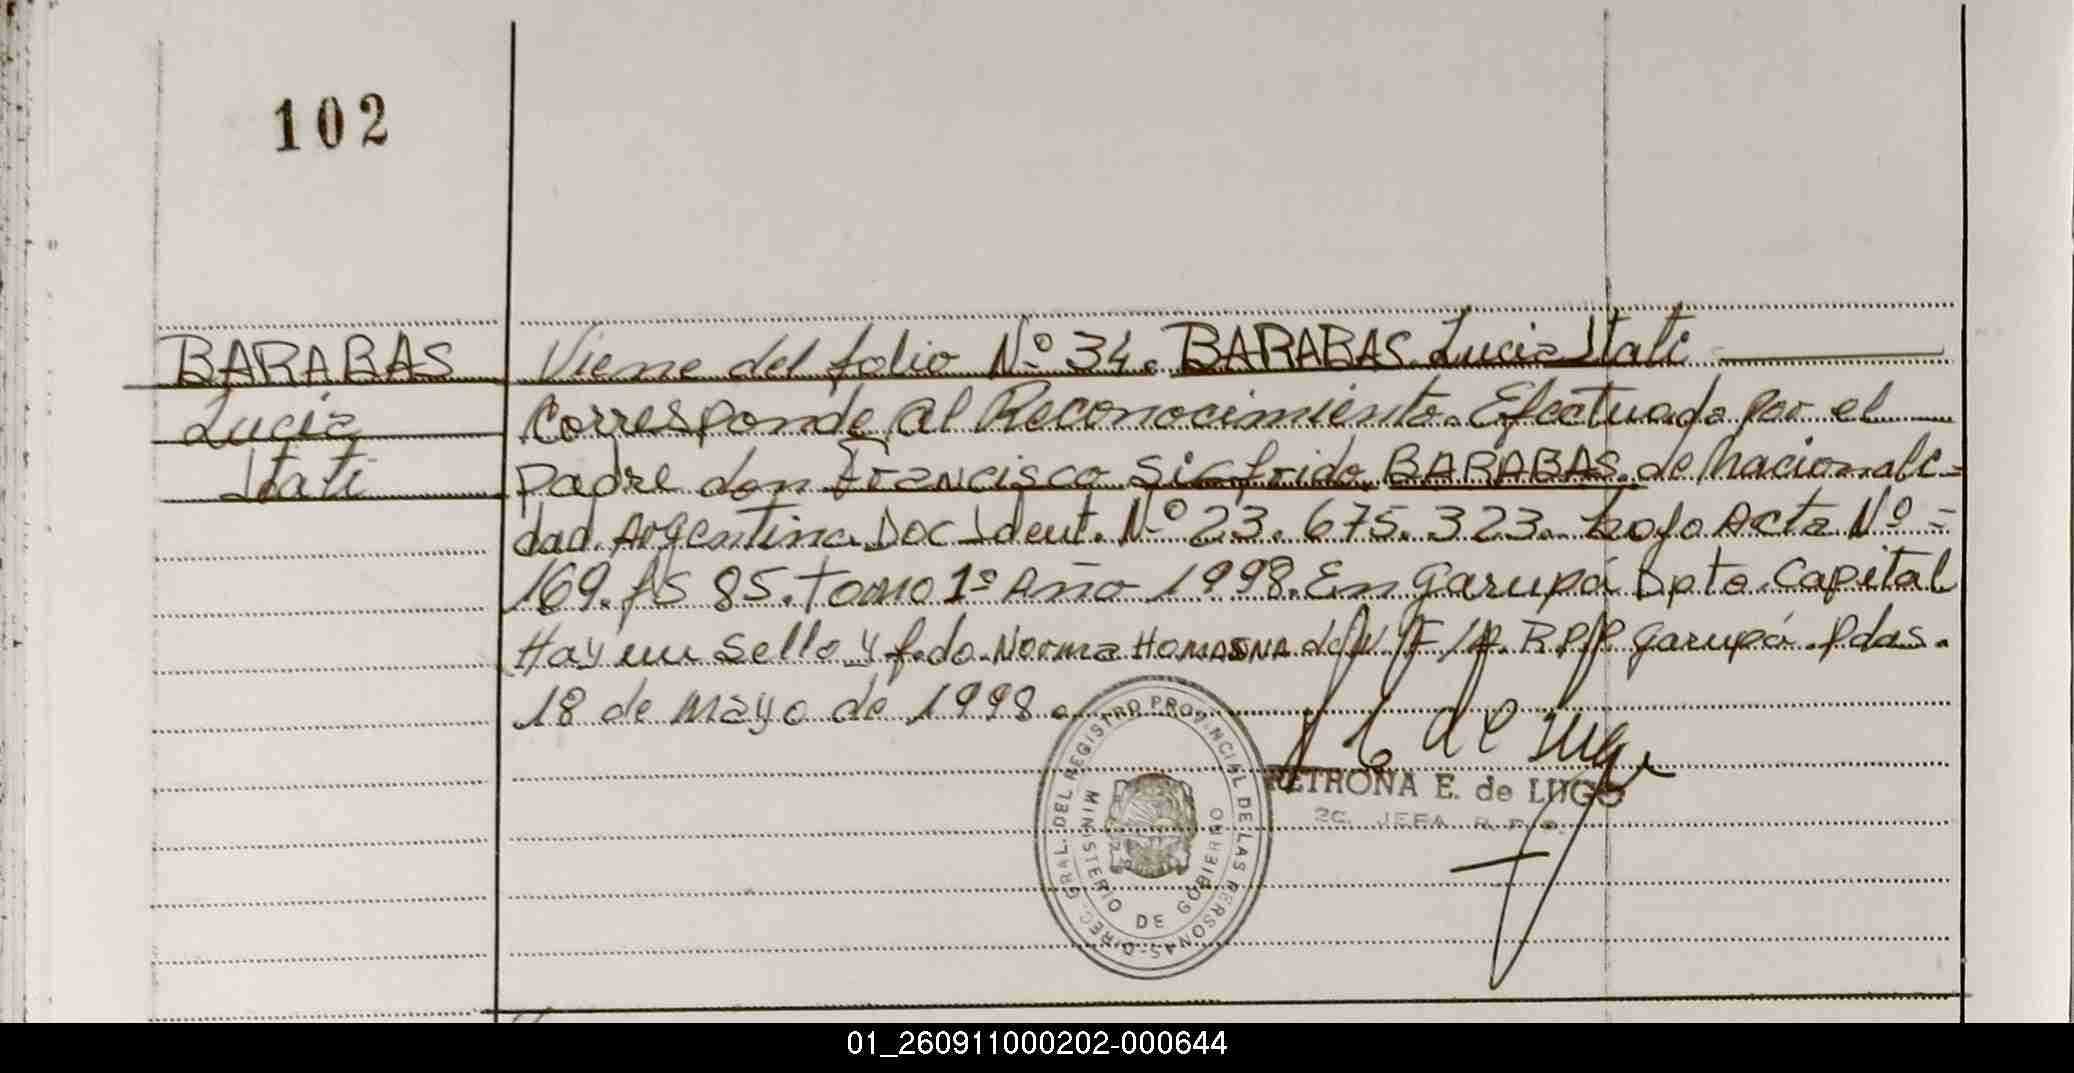 102
BARABAS
Lucia
Itati
Viene del folio Nº 34. BARABAS Lucia Itati
Corresponde al Reconocimiento. Efectuado por el
padre don Francisco Sicfrido BARABAS de Nacionali=
dad Argentina Doc Ident. Nº 23.675.323. bajo Acta Nº =
169. fs 85. tomo 1º Año 1998. En Garupá Dpto. Capital
Hay un Sello y f.do. Norma de N. Garupá. Pdas.
18 de Mayo de 1998.
DIREC. GRAL. DEL REGISTRO PROVINCIAL DE LAS PERSONAS
MINISTERIO DE GOBIERNO
PETRONA E. de LUGO
JEFA R. P. P.
01_260911000202-000644